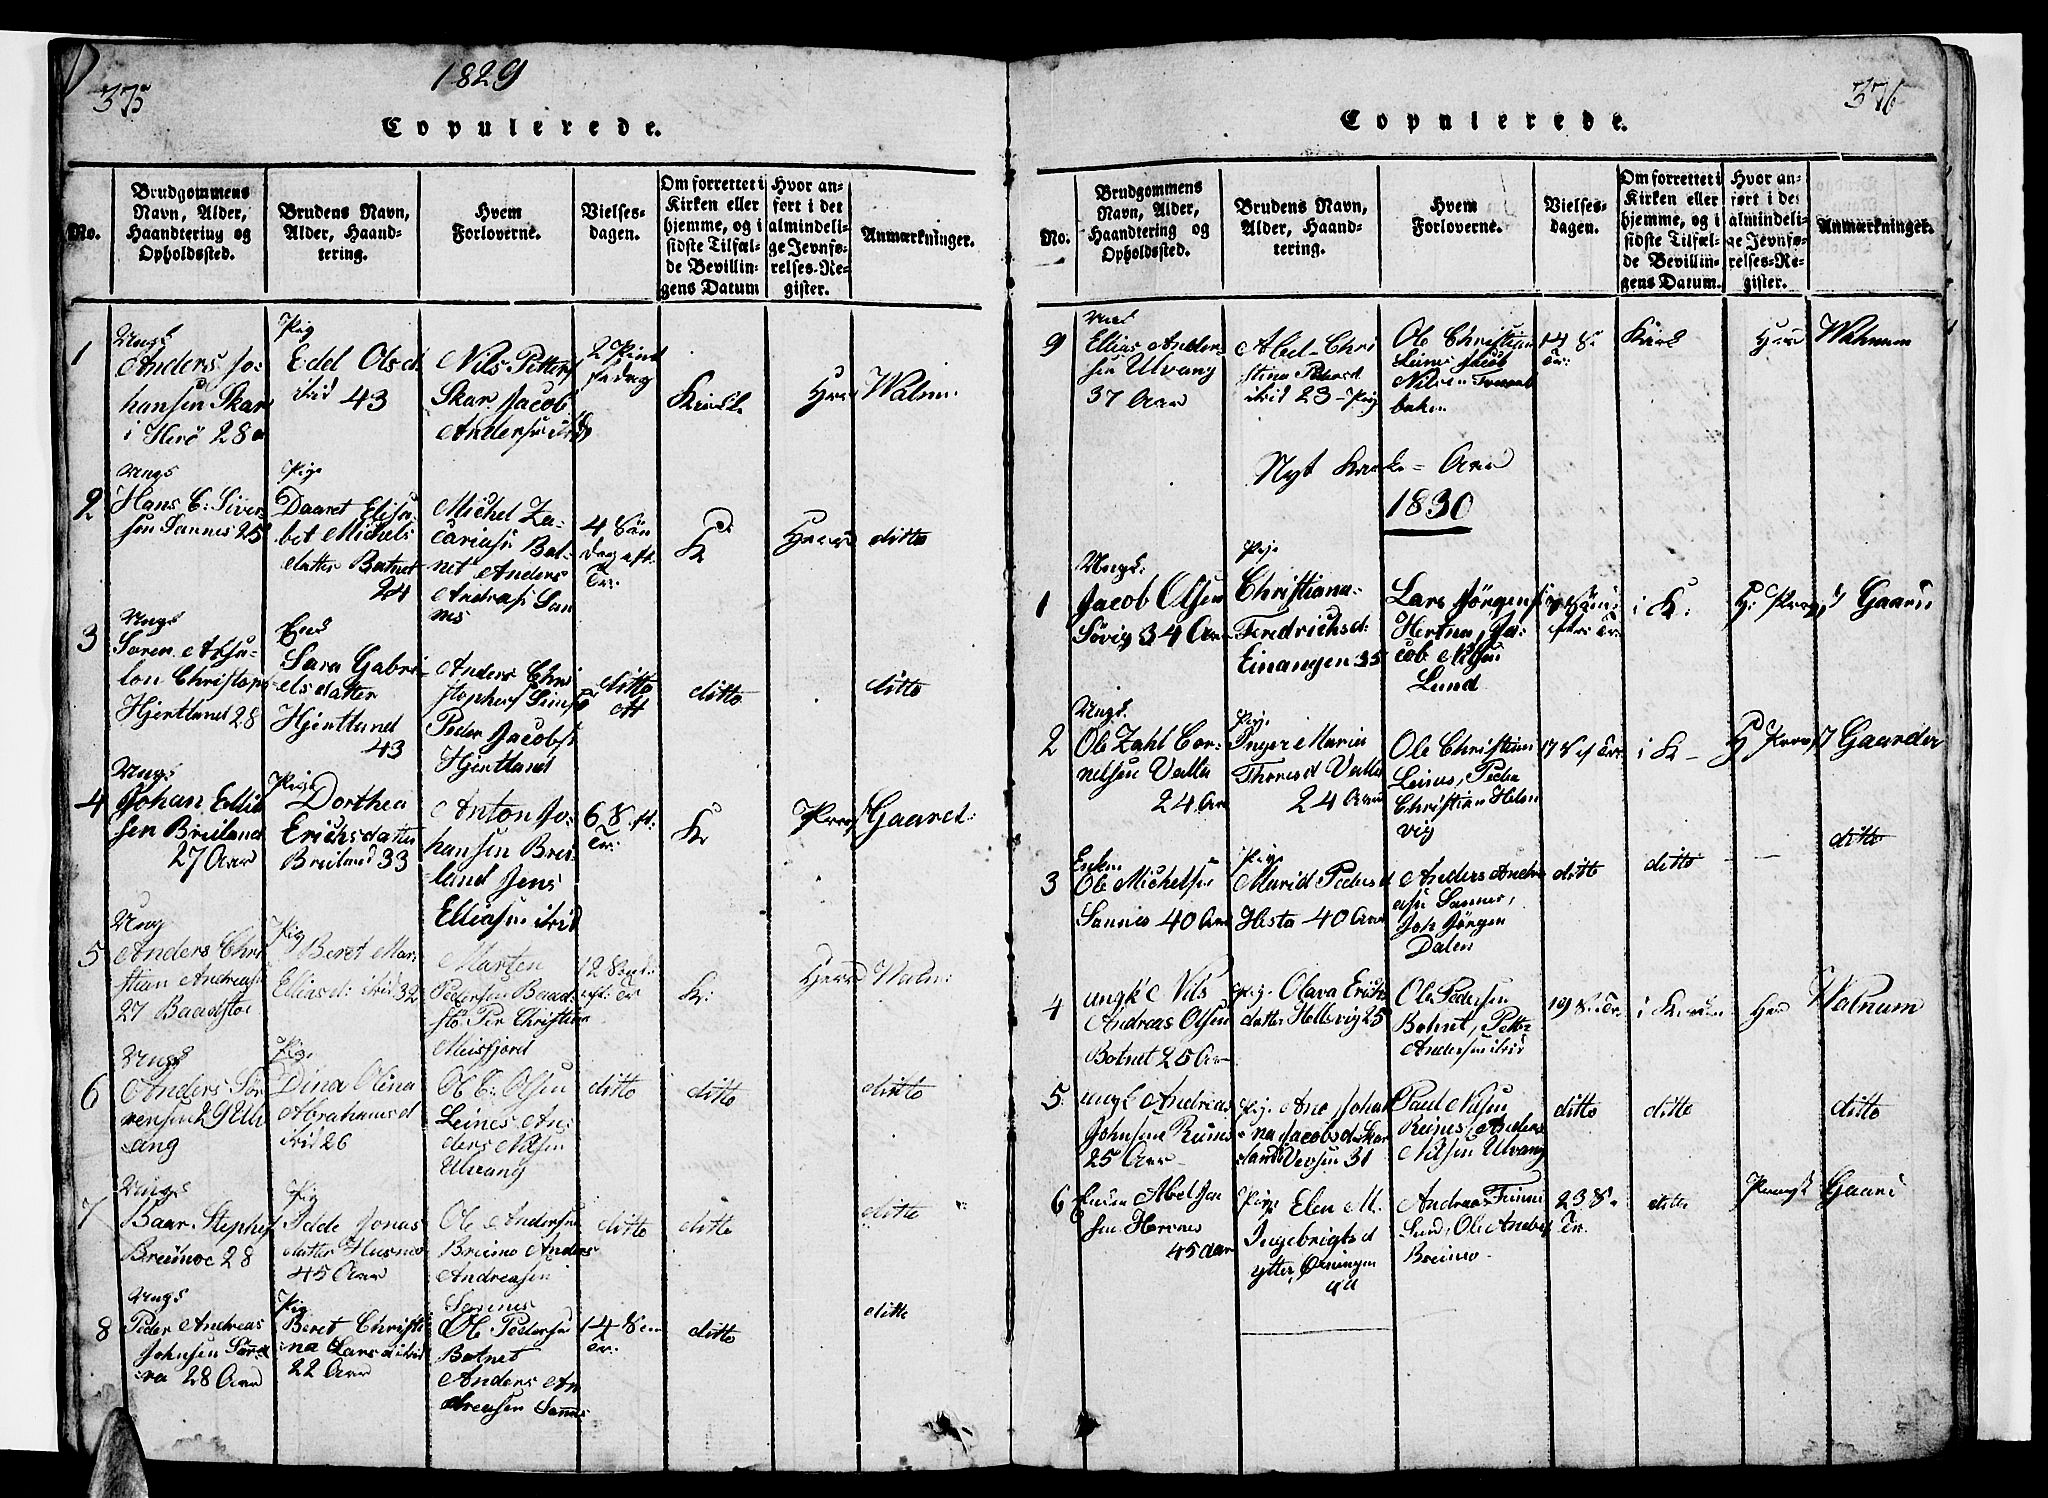 375
1829
Copulerede.
No.
Brudgommens Navn, Alder, Haandtering og Opholdssted.
Brudens Navn, Alder, Haandtering.
Hvem Forloverne.
Vielsesdagen.
Om forrettet i Kirken eller hjemme, og i sidste Tilfælde Bevillingens Datum
Hvor anført i det almindelige Jevnførelses-Register.
Anmærkninger.
1
Ungk
Anders Jo-
hansen Skar
i Herö 28
Pig
Edel Olsd.
43
Nils Petters
Skar. Jacob
Andersen
2 Pint
sedag
Kirke
Hr
Waln:
2
Ungk
Hans C: Siver-
sen Sannes 25
Pige
Daaret Elisa-
bet Michels
datter Botnet
24
Michel Za-
cariasen Bot-
net Anders
Andreas San
nes
4 Sön
dag eft.
Tr:
K
Herr
ditto
3
Ungk
Sören
Christoph
Hjertland 28
Enk
Sara Gabri-
elsdatter
Hjertland
43
Anders Chri
stophers
Peder Jacobs
Hjertland
ditto
ditto
ditto
4
Ungk
Johan Ellia
sen Breiland
27 Aar
Pige
Dorthea
Erichsdatter
Breiland 33
Anton Jo-
hansen Brei-
land Jens
Elliasen
6 S. ef:
Tr:
K
Prov
Gaard:
5
Ung
Anders Chri
stian Andreasen
27 Baadstoe
Pig
Beret Mar.
Elliasd: 32
Marten
Pedersen Baad-
stö. Per Christian
Meisfjord
12 Sönd:
eft: Tr
K:
Herr
Waln:
6
Ungk
Anders Sör-
ensen 29 Ulv
ang
Pig.
Dina Olina
Abrahamsd
26
Ole C: Olsen
Leines An-
ders Nilsen
Ulvang
ditto
ditto
ditto
7
Ungk
Baar Stephs
Breimoe 28
Pig
Adde Jonas
datter Husmo
45 Aar
Ole Andersen
Breimo Anders
Andreasen
Sannes
ditto
ditto
ditto
8
Ungk
Peder Andreas
Johnsen
28 Aar
Pig
Beret Christi
na Larsd
22 Aar
Ole Pedersen
Botnet
Anders An
dreasen Sannes
14 S
Tr:
ditto
ditto
376
Copulerede.
No.
Brudgommens Navn, Alder, Haandtering og Opholdssted.
Brudens Navn, Alder, Haandtering.
Hvem Forloverne.
Vielsesdagen.
Om forrettet i Kirken eller hjemme, og i sidste Tilfælde Bevillingens Datum.
Hvor anført i det almindelige Jevnførelses-Register.
Anmærkninger.
9
Ellias Ander-
sen Ulvang
37 Aar
Abel-Chri
stina Pedersd
23 - Pig
Ole Christian
Leines Jacob
Nilsen
14 S.
Tr:
Kirk
Herr
Walnum
Nyt Kirke-Aar
1830
1
Ungk:
Jacob Olsen
Sövig 34 Aar
Pige
Christiana
Fredrichsd:
Einangen 35
Lars Jörgens
Hertna, Ja-
cob Nilsen
Lund
i K:
H: Provst
Gaarder
2
Ungk.
Ole Zahl Cor-
nelsen Valla
24 Aar
Pige
Inger Maria
Thoresd Valla
24 Aar
Ole Christian
Leines, Peder
Christian Helsn
vig
17 S ef Tr.
i K
H Provst
Gaarder
3
Enkm
Ole Michelsen
Sannes 40 Aar
Pige
Marid Pedersd
Hesta 40 Aar
Anders Andre
asen Sannes,
Joh Jörgen
Dalen
ditto
ditto
ditto
4
ungk Nils
Andreas Olsen
Botnet 25 Aar
pig. Olava Erichs
datter Hellsvig 25
Ole Pedersen
Botnet, Petter
Andersen
19 S. Tr.
i Kirken
Herr
Walnum
5.
ungk Andreas
Johnsen Reines
25 Aar
pig. Ane Johan
na Jacobsd Skar
31
Paul Nilsen
Reines, Anders
Nilsen Ulvang
ditto
ditto
ditto
6
Abel Jen
sen
45 Aar
Pige Elen M.
Ingebrigtsd
ytter Öiningen
44
Andreas Finne
Lund, Ole Anders
Breimo
23 S.
Tr.
ditto
Provst
Gaard